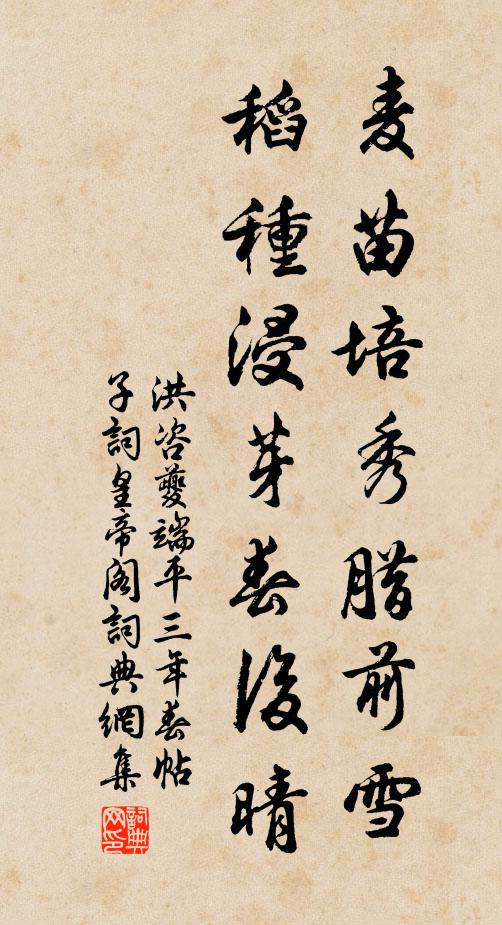 麦苗培秀腊前雪
稻種浸芽春後晴
洪咨夔端平三年春帖
子詞皇帝阁詞典網集
詞典
网印